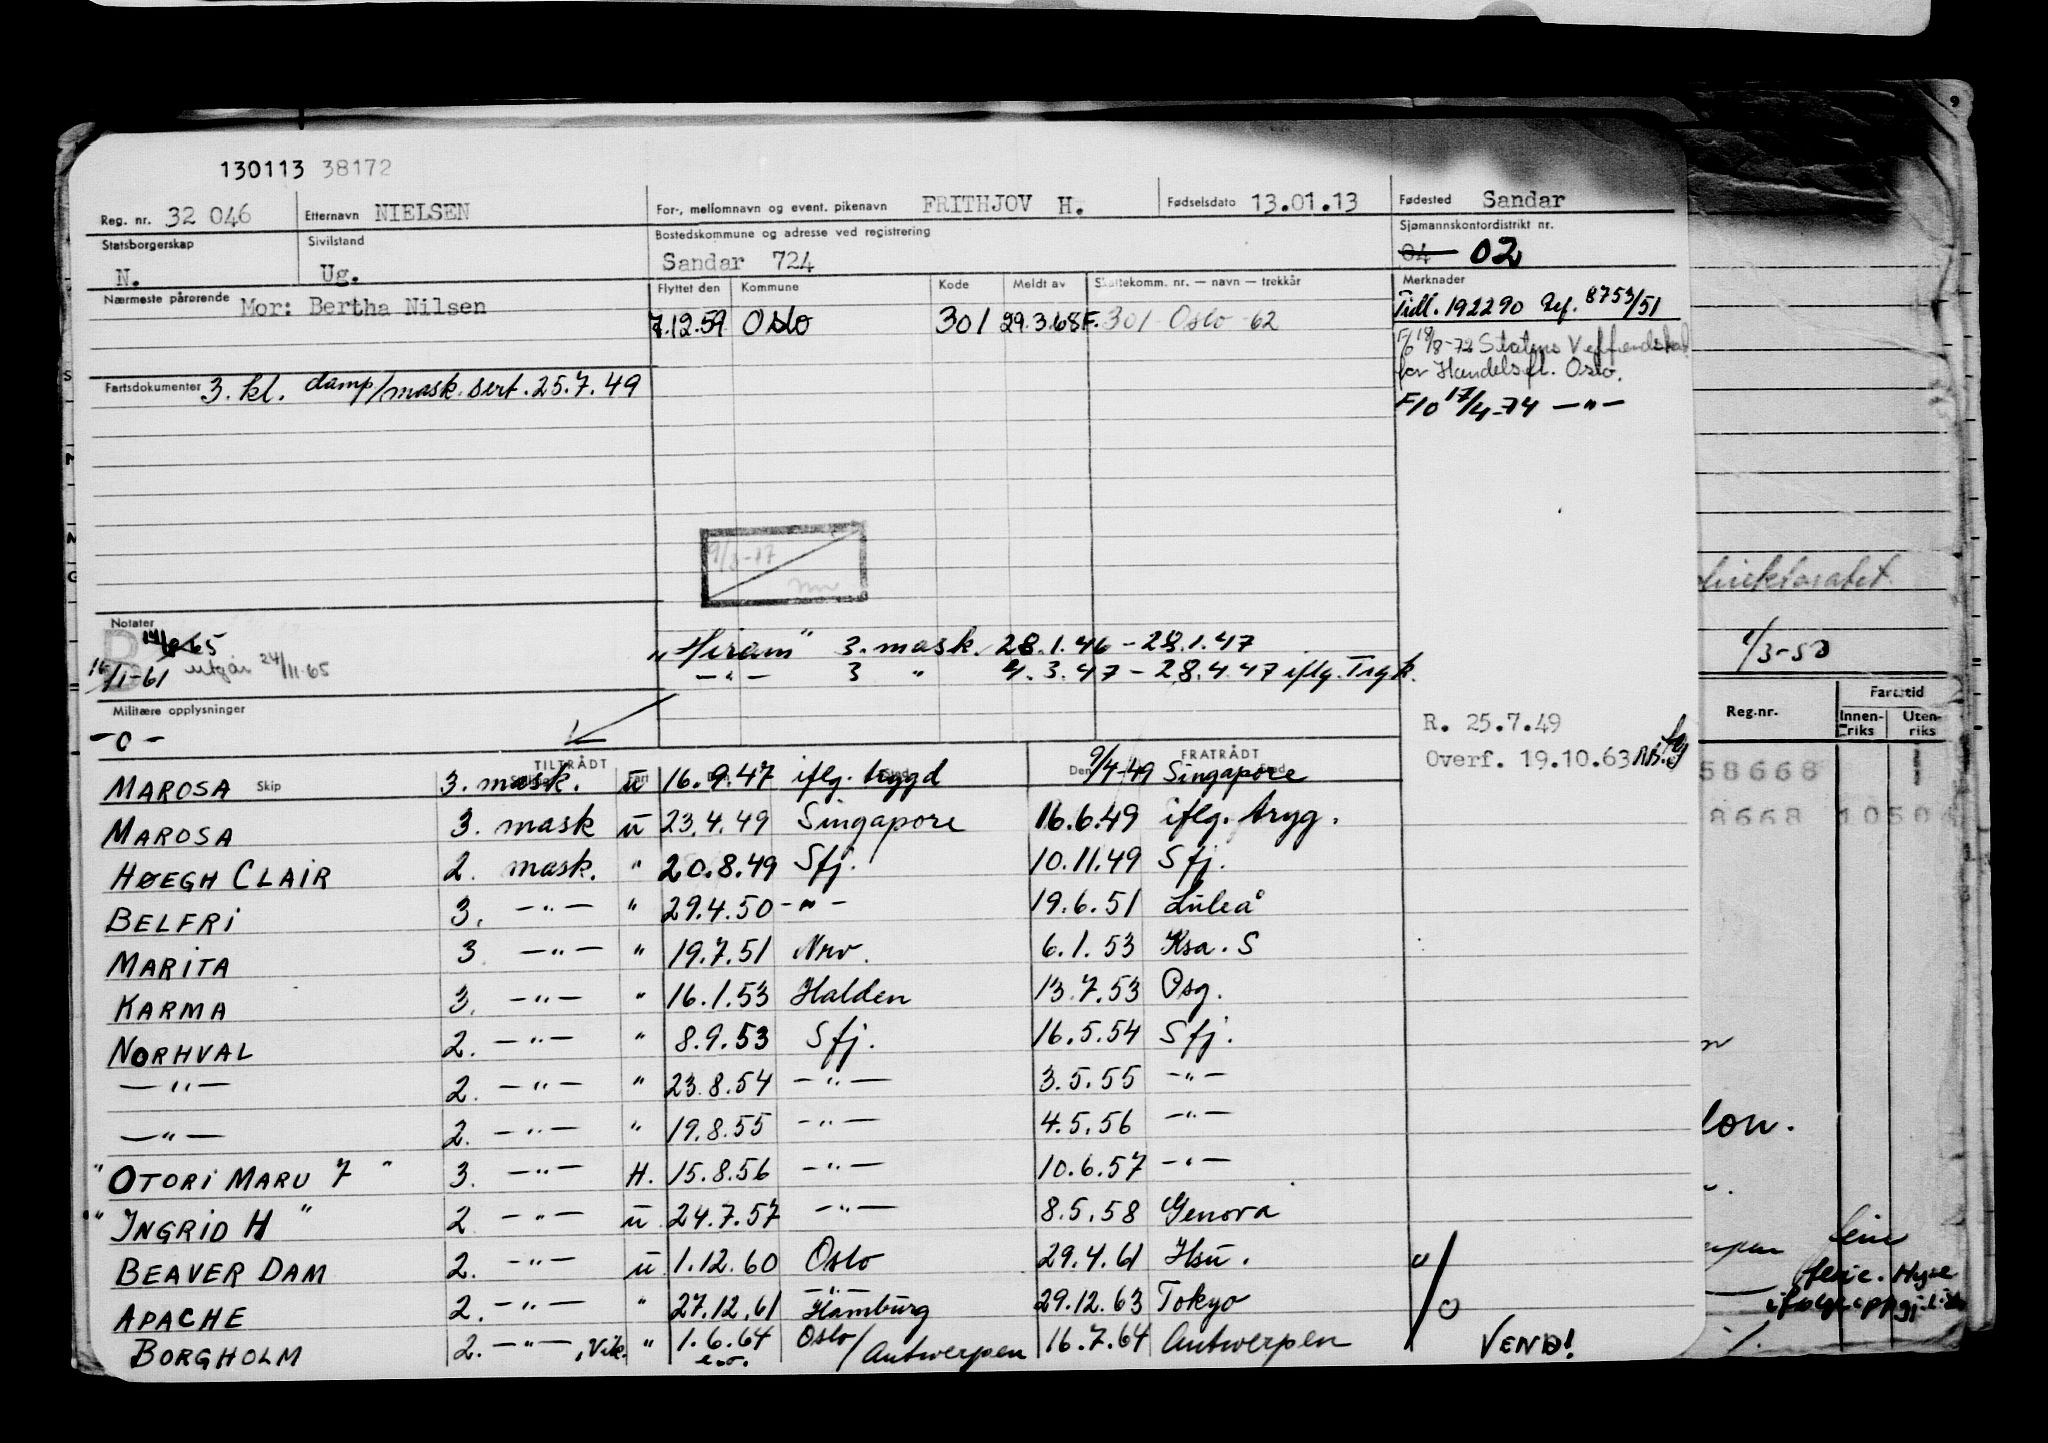 130113 38172
Reg. nr. 32 046 Etternavn NIELSEN For-, mellomnavn og event. pikenavn FRITHJOV H. Fødselsdato 13.01.13 Fødested Sandar
Statsborgerskap N. Sivilstand Ug. Bostedskommune og adresse ved registrering Sandar 724 Sjømannskontordistrikt nr. 04 02
Nærmeste pårørende Mor: Bertha Nilsen
Flyttet den Kommune Kode Meldt av Skattekomm. nr. — navn — trekkår Merknader
7.12.59 Oslo 301 29.3.68 F. 301 Oslo 62
Tidl. 192290 Ref. 8753/51
F/o 18/8-72 Statens
for Handelsfl. Oslo.
F/o 17/4-74 — " —
Fartsdokumenter 3. kl. damp/mask. sert. 25.7.49
9/3-17
Notater
65
16/1-61 utgår 24/11-65
"Hiram" 3. mask. 28.1.46 - 28.1.47
— " — 3 " 4.3.47 - 28.4.47 iflg. Trgk.
Militære opplysninger
- 0 -
R. 25.7.49
Overf. 19.10.63
TILTRÅDT FRATRÅDT
Skip Fart Den
MAROSA 3. mask. u 16.9.47 iflg. trygd 9/4-49 Singapore
MAROSA 3. mask u 23.4.49 Singapore 16.6.49 iflg. tryg.
HØEGH CLAIR 2. mask. " 20.8.49 Sfj. 10.11.49 Sfj.
BELFRI 3. — " — " 29.4.50 - " - 19.6.51 Luleå
MARITA 3 — " — " 19.7.51 Nrv. 6.1.53 Ksa. S
KARMA 3. — " — " 16.1.53 Halden 13.7.53 Psg.
NORHVAL 2. — " — " 8.9.53 Sfj. 16.5.54 Sfj.
— " — 2. — " — " 23.8.54 — " — 3.5.55 — " —
— " — 2. — " — " 19.8.55 — " — 4.5.56 — " —
"OTORI MARU 7" 3. — " — H. 15.8.56 — " — 10.6.57 — " —
"INGRID H" 2 — " — u 24.7.57 — " — 8.5.58 Genova
BEAVER DAM 2. — " — u 1.12.60 Oslo 29.4.61 Hsu.
APACHE 2. — " — " 27.12.61 — " — Hamburg 29.12.63 Tokyo
BORGHOLM 2. — " —, Vik. " 1.6.64 Oslo / Antwerpen 16.7.64 Antwerpen
e.o.
VEND!
direktoratet
1/3-50
Reg.nr. Fartstid
Innen-riks Uten-riks
58668
8668 1050
lon.